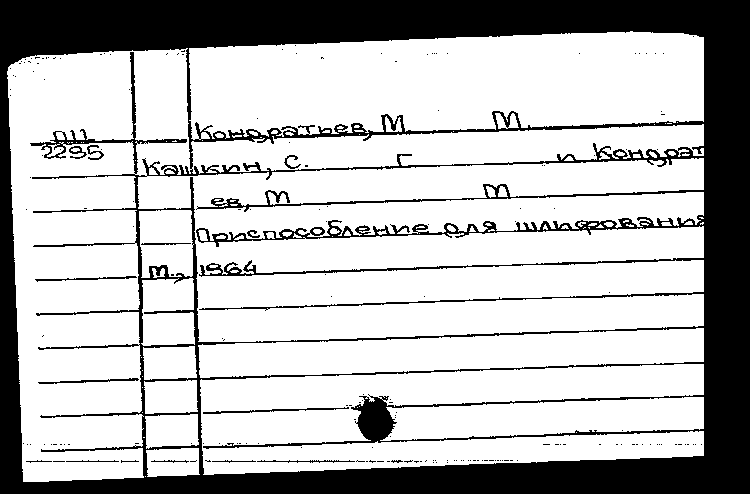 П11
2295
Кондратьев, М. М.
Кашкин, С. Г и Кондрат
ев, М М
Приспособление для шлифования
М., 1964